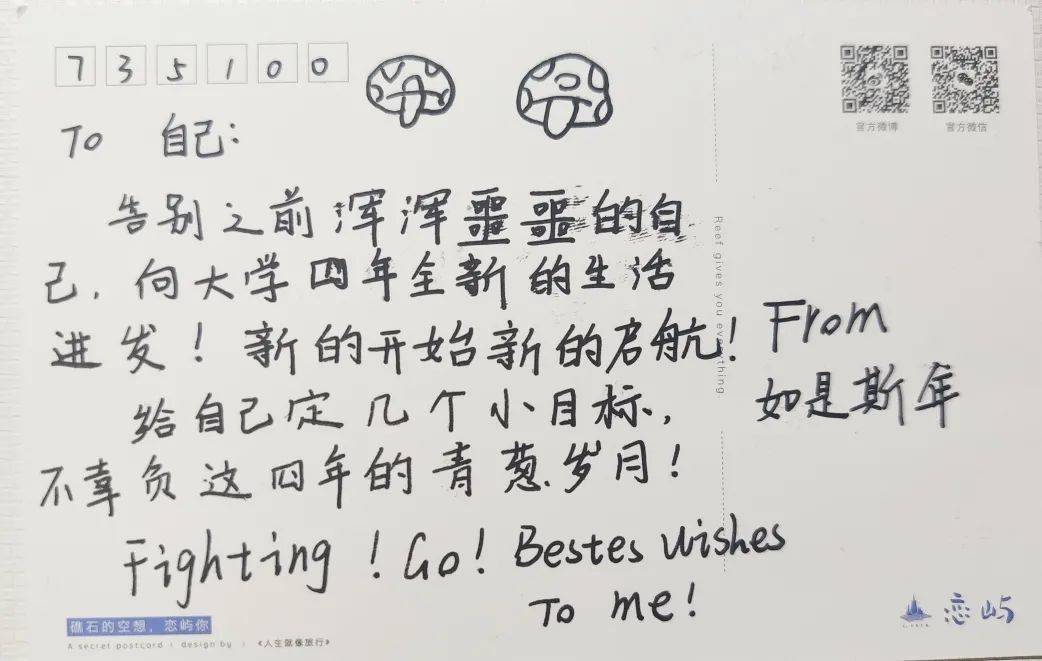 735100
官方微博 官方微信
To 自己:
告别之前浑浑噩噩的自
己,向大学四年全新的生活
进发!新的开始新的启航!
给自己定几个小目标,
不辜负这四年的青葱岁月!
Fighting!Go!Bestes wishes
To me!
From
如是斯年
Reef gives you everything
礁石的空想,恋屿你
A secret postcard | design by | 《人生就像旅行》
恋屿